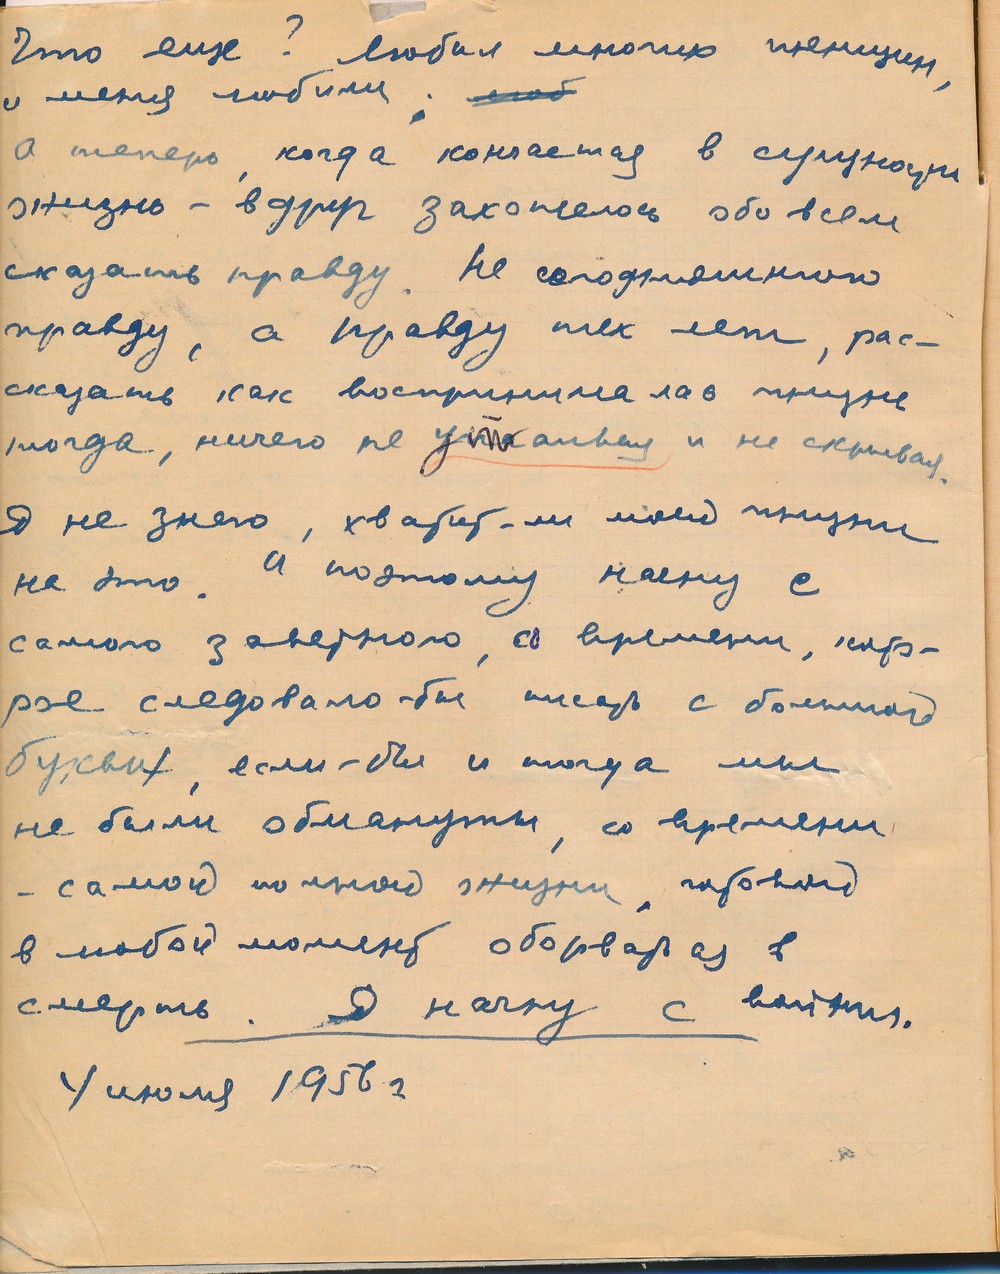 Что еще? Любил многих женщин,
и меня любили.
А теперь, когда кончается в сущности
жизнь – вдруг захотелось обо всем
сказать правду. Не сегодняшнюю
правду, а правду тех лет, рас-
сказать как воспринималась жизнь
тогда, ничего не утаивая и не скрывая.
Я не знаю, хватит-ли моей жизни
на это. И поэтому начну с
самого заветного, со времени, кото-
рое следовало-бы писать с большой
буквы, если-бы и тогда мы
не были обмануты, со времени
– самой полной жизни, готовой
в любой момент оборваться в
смерть. Я начну с войны.
4 июля 1956 г